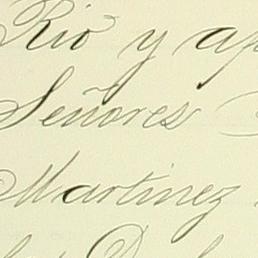 Rio y
Señores
Martinez